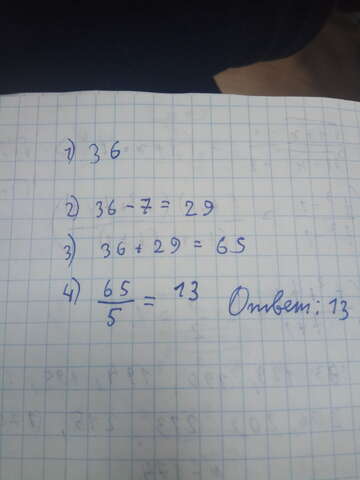 1) 36
2) 36 - 7 = 29
3) 36 + 29 = 65
4) 65/5 = 13 Ответ: 13